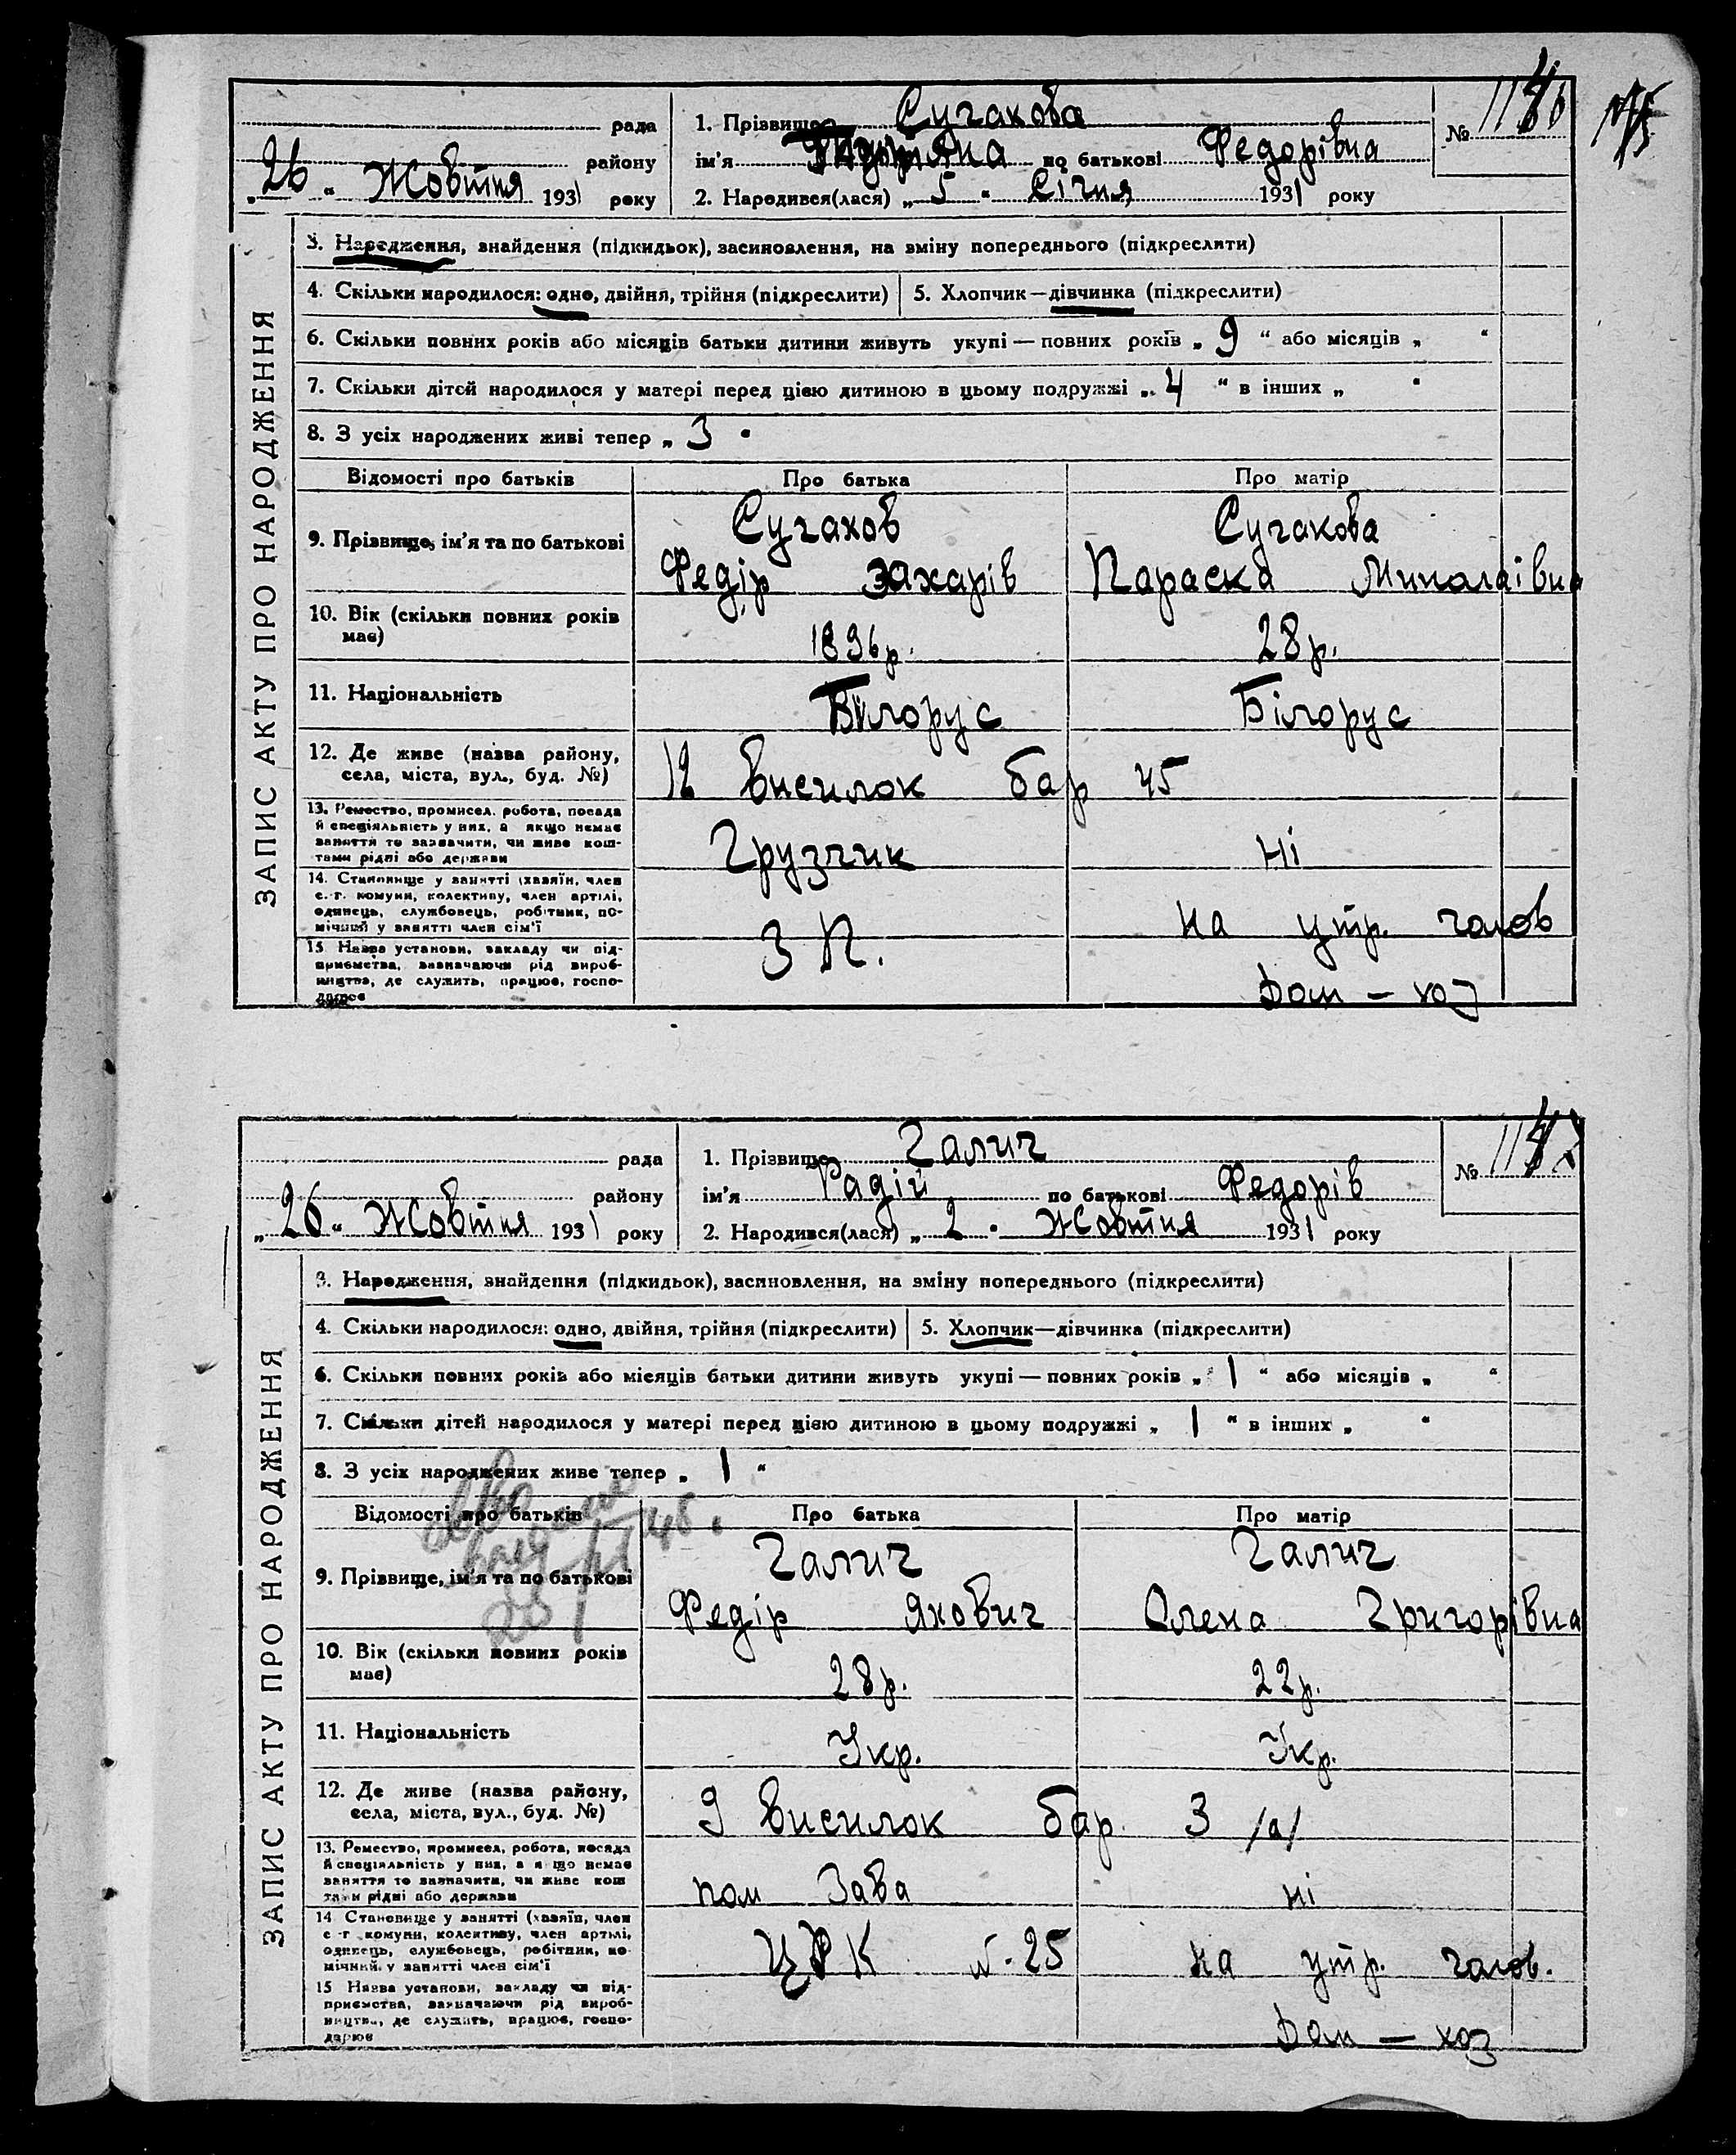 рада
району
„26“ Жовтня 1931 року
1. Прізвище Сугакова
ім'я по батькові Федорівна
2. Народився(лася) „5“ Січня 1931 року
№
ЗАПИС АКТУ ПРО НАРОДЖЕННЯ
3. Народження, знайдення (підкидьок), засиновлення, на зміну попереднього (підкреслити)
4. Скільки народилося: одно, двійня, трійня (підкреслити)
5. Хлопчик—дівчинка (підкреслити)
6. Скільки повних років або місяців батьки дитини живуть укупі — повних років „9“ або місяців „ “
7. Скільки дітей народилося у матері перед цією дитиною в цьому подружжі „4“ в інших „ “
8. З усіх народжених живі тепер „3“
Відомості про батьків
Про батька
Про матір
9. Прізвище, ім'я та по батькові
Сугаков
Федір Захарів
Сугакова
Параска Миколаівна
10. Вік (скільки повних років
має)
1896р.
28р.
11. Національність
Білорус
Білорус
12. Де живе (назва району,
села, міста, вул., буд. №)
12 висилок бар 45
13. Ремество, промисел, робота, посада
й спеціяльність у них, а якщо немає
заняття то зазначити, чи живе кош-
тами рідні або держави
Грузчик
Ні
14. Становище у занятті (хазяїн, член
с.-г. комуни, колективу, член артілі,
одинець, службовець, робітник, по-
мічний у занятті член сім'ї
З П.
на утр. голов
15 Назва установи, закладу чи під-
приємства, зазначаючи рід вироб-
ництва, де служить, працює, госпо-
дарює
Дом – хоз
рада
району
„26“ Жовтня 1931 року
1. Прізвище Галич
ім'я Радій по батькові Федорів
2. Народився(лася) „2“ Жовтня 1931 року
№
ЗАПИС АКТУ ПРО НАРОДЖЕННЯ
3. Народження, знайдення (підкидьок), засиновлення, на зміну попереднього (підкреслити)
4. Скільки народилося: одно, двійня, трійня (підкреслити)
5. Хлопчик—дівчинка (підкреслити)
6. Скільки повних років або місяців батьки дитини живуть укупі — повних років „1“ або місяців „ “
7. Скільки дітей народилося у матері перед цією дитиною в цьому подружжі „1“ в інших „ “
8. З усіх народжених живе тепер „1“
Відомості про батьків
Про батька
Про матір
9. Прізвище, ім'я та по батькові
Галич
Федір Якович
Галич
Олена Григорівна
10. Вік (скільки повних років
має)
28р.
22р.
11. Національність
Укр.
Укр.
12. Де живе (назва району,
села, міста, вул., буд. №)
9 висилок бар. 3 /а/
13. Ремество, промисел, робота, посада
й спеціяльність у них, а якщо немає
заняття то зазначити, чи живе кош
тами рідні або держави
пом Зава
ні
14 Становище у занятті (хазяїн, член
с-г комуни, колективу, член артілі,
одинець, службовець, робітник, по-
мічний у занятті член сім'ї
ЦРК №25
на утр. голов.
15 Назва установи, закладу чи під-
приємства, зазначаючи рід вироб-
ництва, де служить, працює, госпо-
дарює
Дом – хоз